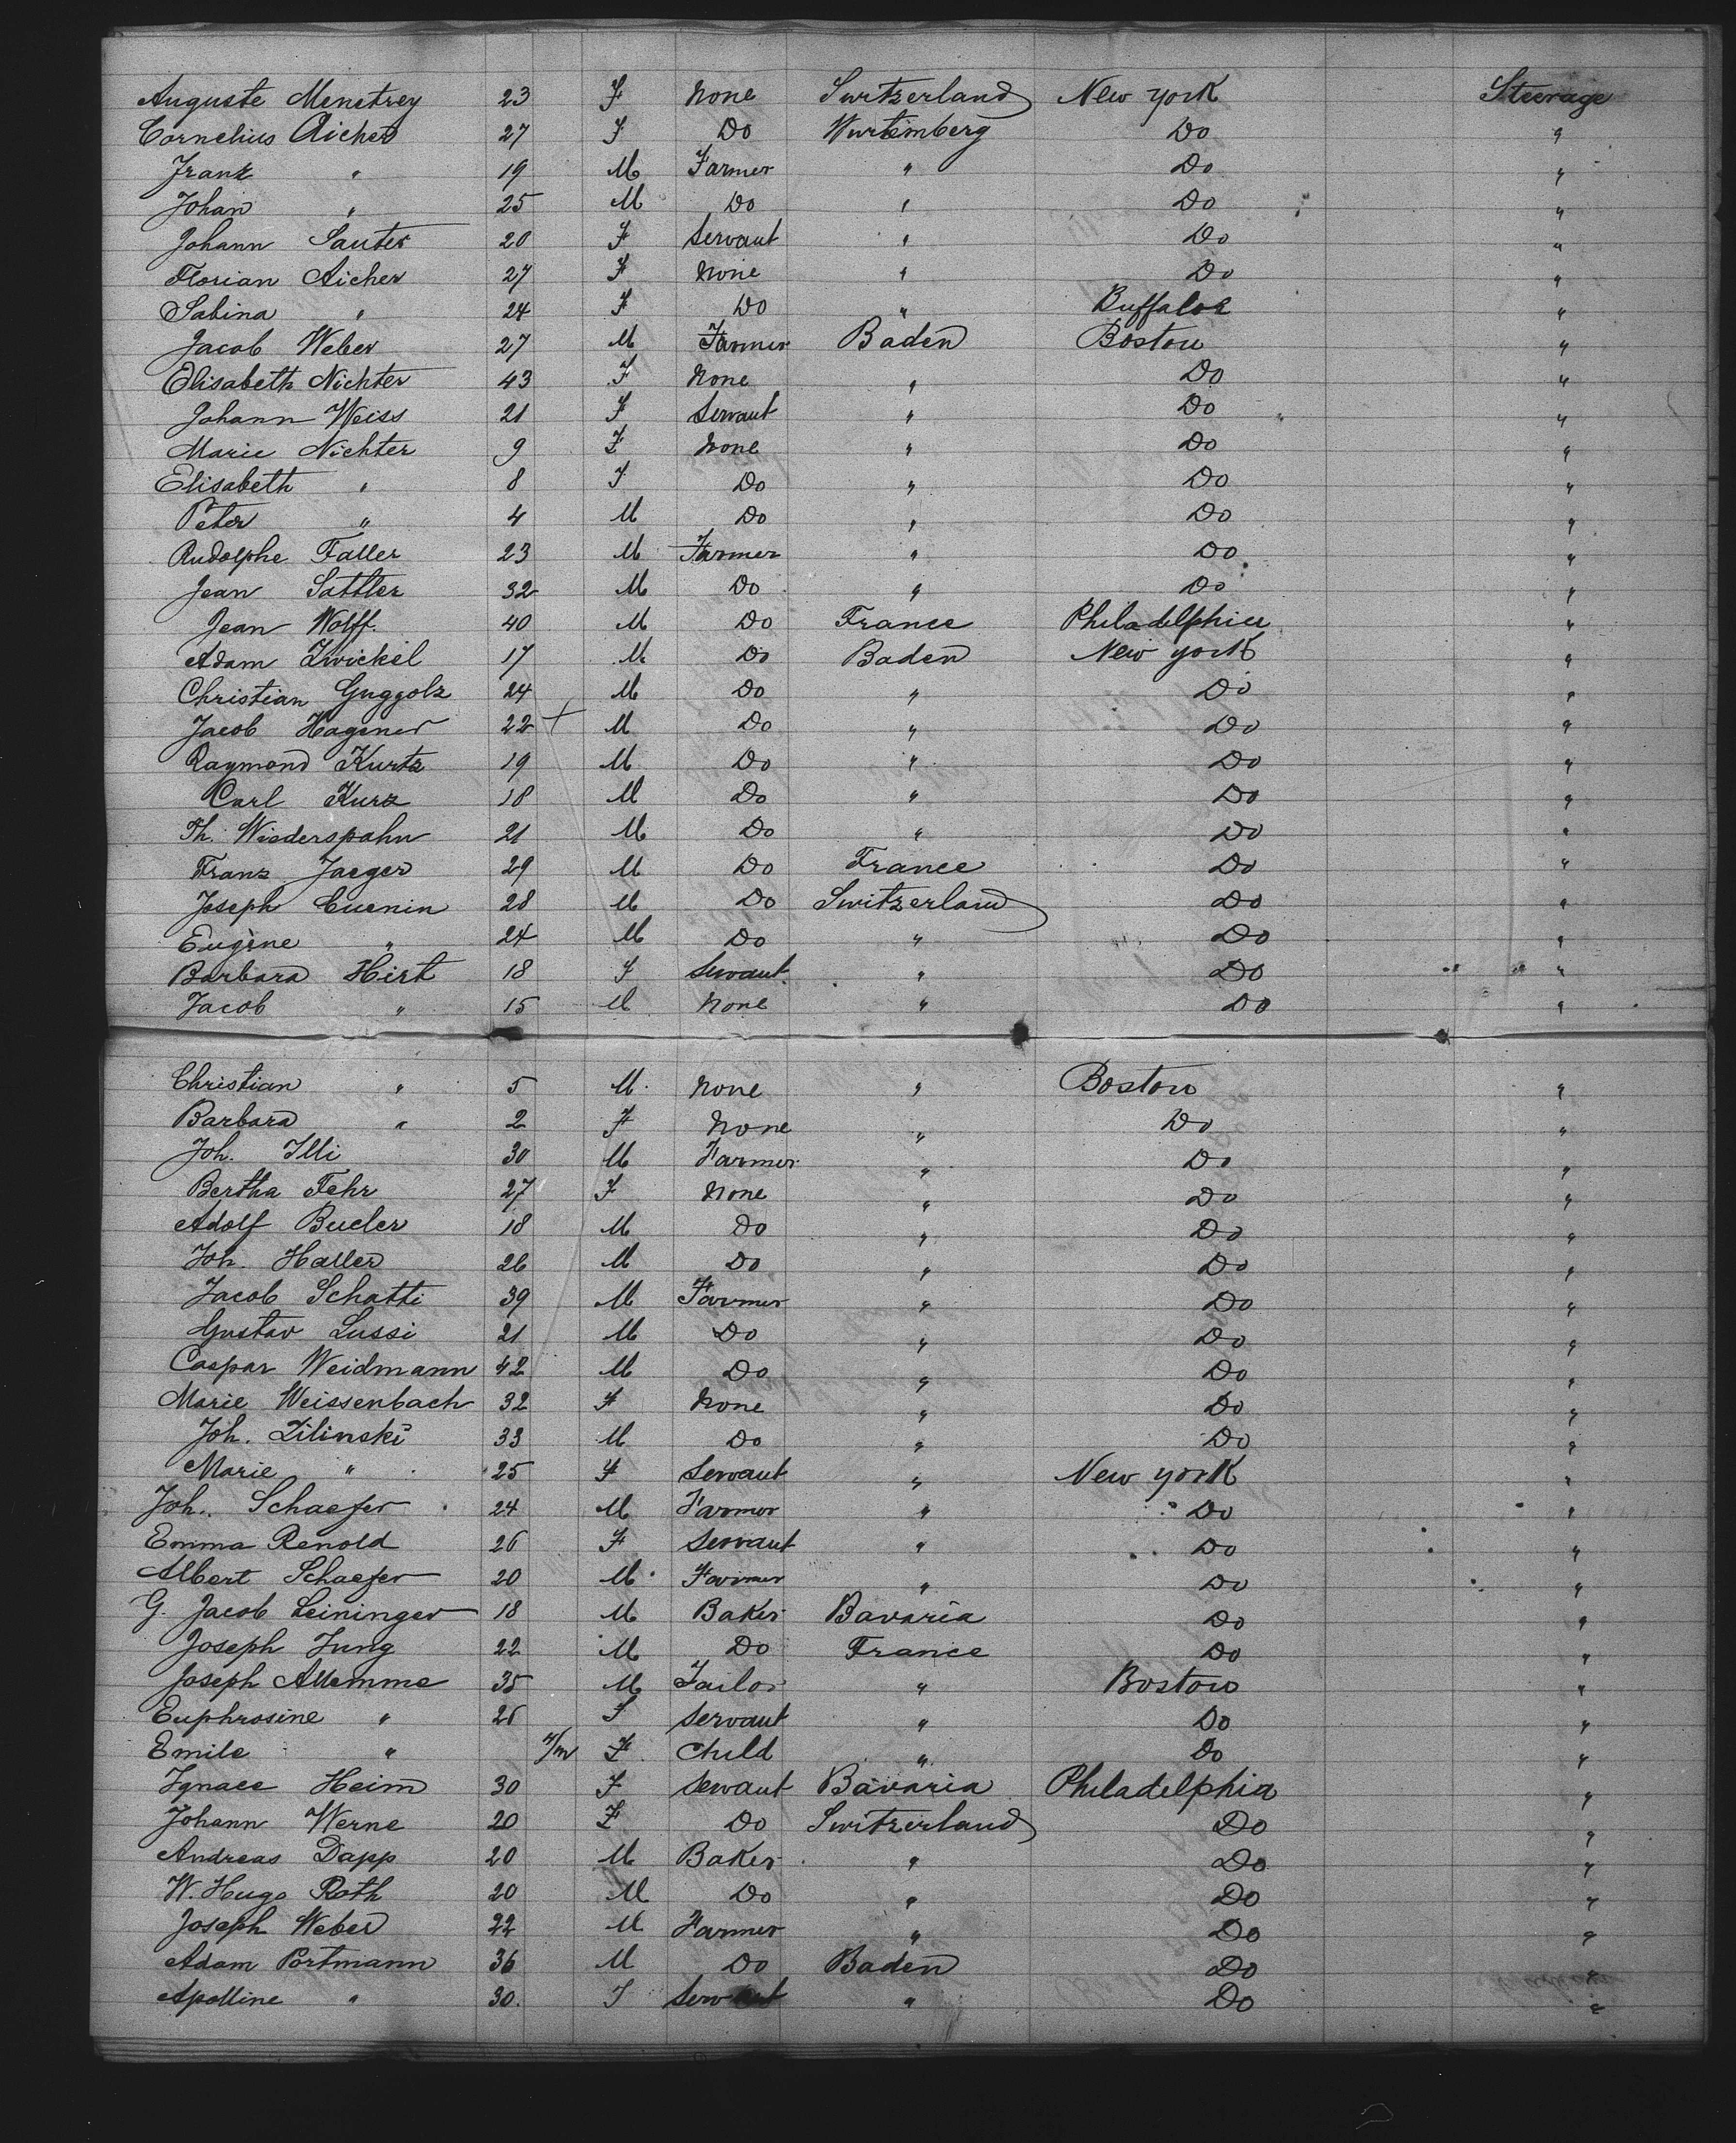 Auguste Menetrey 23 F None Switzerland New York Steerage
Cornelius Aicher 27 F Do Wurtemberg Do "
Franz " 19 M Farmer " Do "
Johan " 25 M Do " Do "
Johann Sauter 20 F Servant " Do "
Florian Aicher 27 F None " Do "
Sabina " 24 F Do " Buffaloe "
Jacob Weber 27 M Farmer Baden Boston "
Elisabeth Nichter 43 F None " Do "
Johann Weiss 21 F Servant " Do "
Marie Nichter 9 F None " Do "
Elisabeth " 8 F Do " Do "
Peter " 4 M Do " Do "
Rudolphe Faller 23 M Farmer " Do "
Jean Sattler 32 M Do " Do "
Jean Wolff. 40 M Do France Philadelphia "
Adam Zwickel 17 M Do Baden New York "
Christian Guggolz 24 M Do " Do "
Jacob Hagener 22 + M Do " Do "
Raymond Kurtz 19 M Do " Do "
Carl Kurz 18 M Do " Do "
Th. Wiederspahn 21 M Do " Do "
Franz Jaeger 29 M Do France Do "
Joseph Cuenin 28 M Do Switzerland Do "
Eugène " 24 M Do " Do "
Barbara Hirt 18 F Servant " Do "
Jacob " 15 M None " Do "
Christian " 5 M None " Boston "
Barbara " 2 F None " Do "
Joh. Illi 30 M Farmer " Do "
Bertha Fehr 27 F None " Do "
Adolf Bueler 18 M Do " Do "
Joh. Haller 26 M Do " Do "
Jacob Schatti 39 M Farmer " Do "
Gustav Lussi 21 M Do " Do "
Caspar Weidmann 42 M Do " Do "
Marie Weissenbach 32 F None " Do "
Joh. Zilinski 33 M Do " Do "
Marie " 25 F Servant " New York "
Joh. Schaefer 24 M Farmer " Do "
Emma Renold 26 F Servant " Do "
Albert Schaefer 20 M Farmer " Do "
G. Jacob Leininger 18 M Baker Bavaria Do "
Joseph Jung 22 M Do France Do "
Joseph Allemme 35 M Tailor " Boston "
Euphrosine " 26 F Servant " Do "
Emile " F Child " Do "
Ignace Heim 30 F Servant Bavaria Philadelphia "
Johann Werne 20 F Do Switzerland Do "
Andreas Dapp 20 M Baker " Do "
W. Hugo Roth 20 M Do " Do "
Joseph Weber 22 M Farmer " Do "
Adam Portmann 36 M Do Baden Do "
Apolline " 30. F Servant " Do "